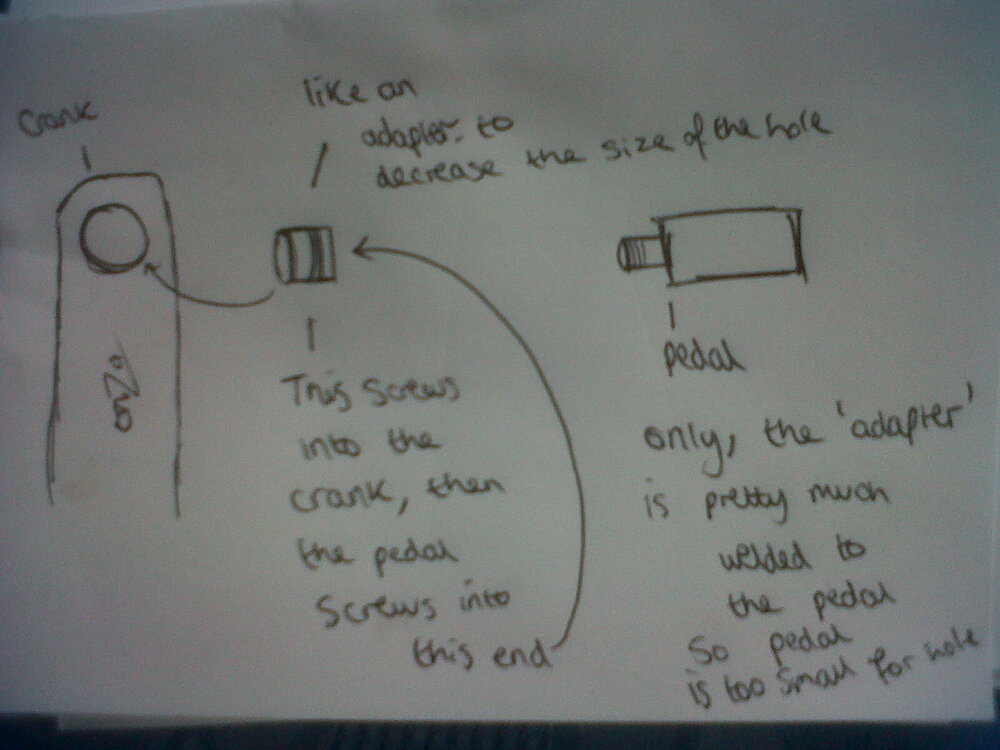 Crank
like an
adapter. to
decrease the size of the hole
This screws
into the
crank, then
the pedal
screws into
this end
pedal
only, the 'adapter'
is pretty much
welded to
the pedal
So pedal
is too small for hole